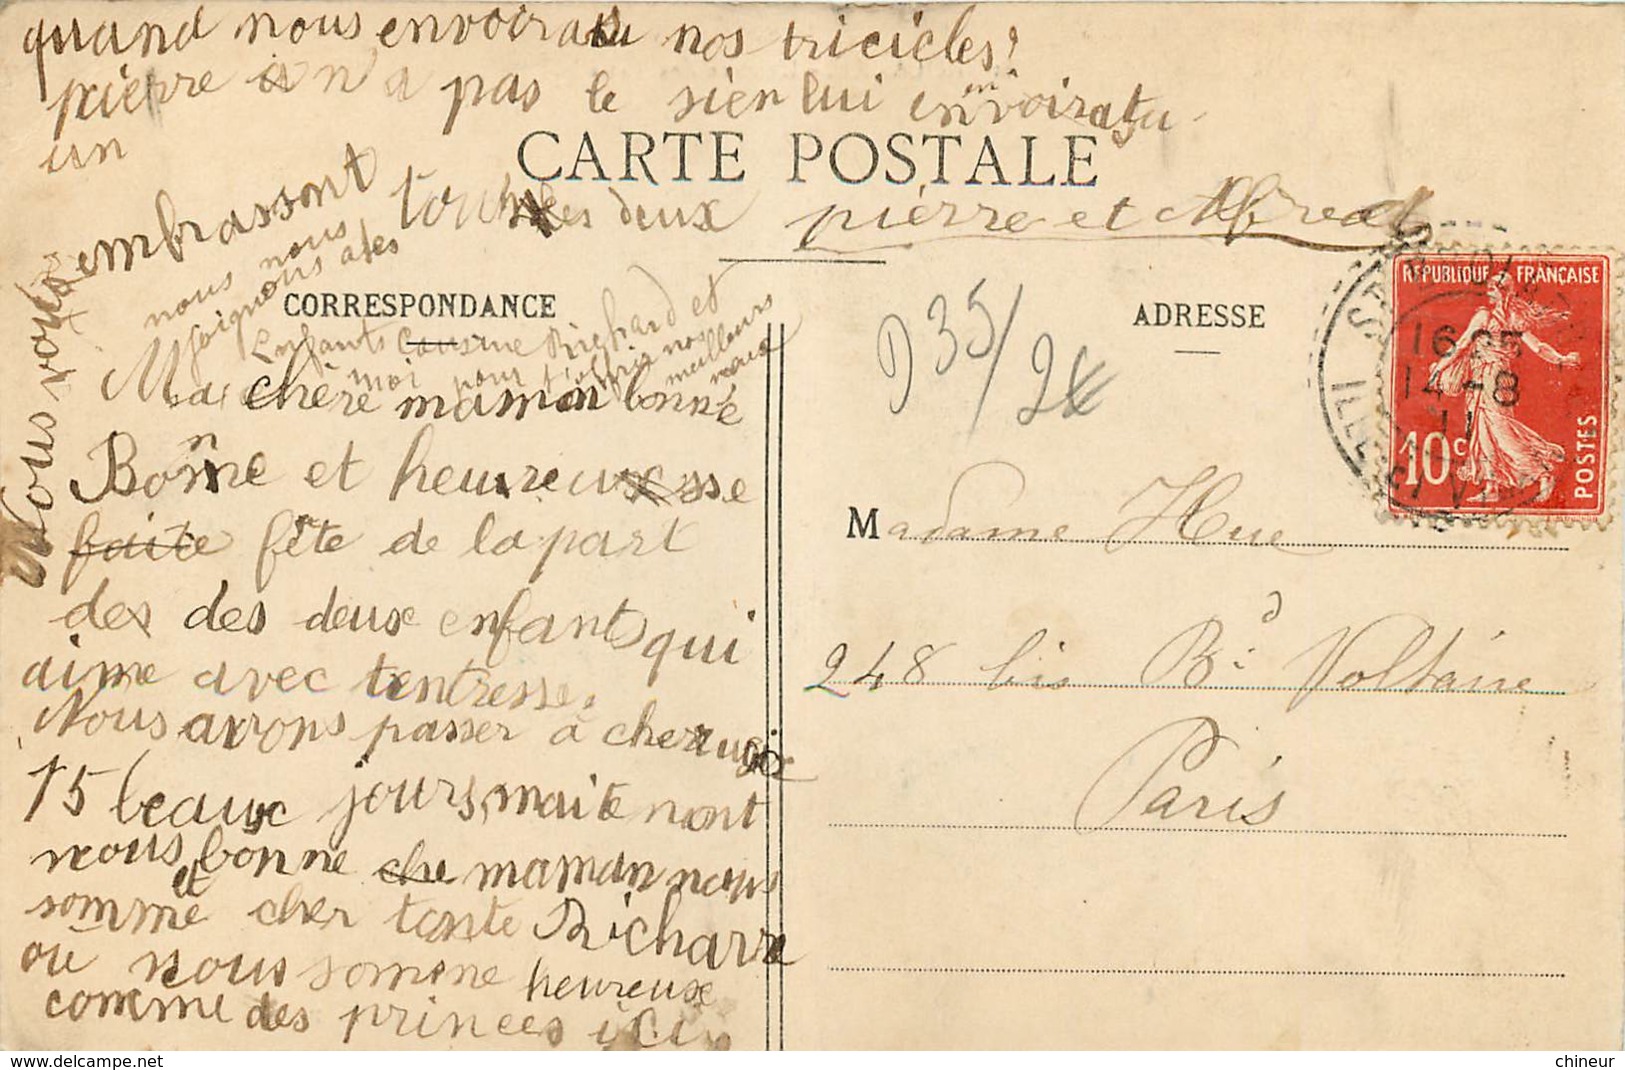 quand nous envoiras tu nos tricicles?
pierre n a pas le sien lui envoiratu
un
CARTE POSTALE
Nous vous embrassont tous les deux pierre et Alfred
nous nous
joignons a tes
CORRESPONDANCE
Enfants cousine Richard et
moi pour t'offrir nos
meilleurs
vœux
Ma chère maman bonne
Bonne et heureusse
faite fête de la part
des des deux enfants qui
aime avec tentresse.
Nous avons passer à cherugis
15 beaux jours, maitenant
nous bonne che maman nous
somme et cher tante Richarre
ou nous somme heureux
comme des princes ici
ADRESSE
D 35/2
RÉPUBLIQUE FRANÇAISE
10c
POSTES
16 25
14 -8
11
ILLE-ET-VILAINE
Madame Hue
248 bis Bd Voltaire
Paris
www.delcampe.net
chineur